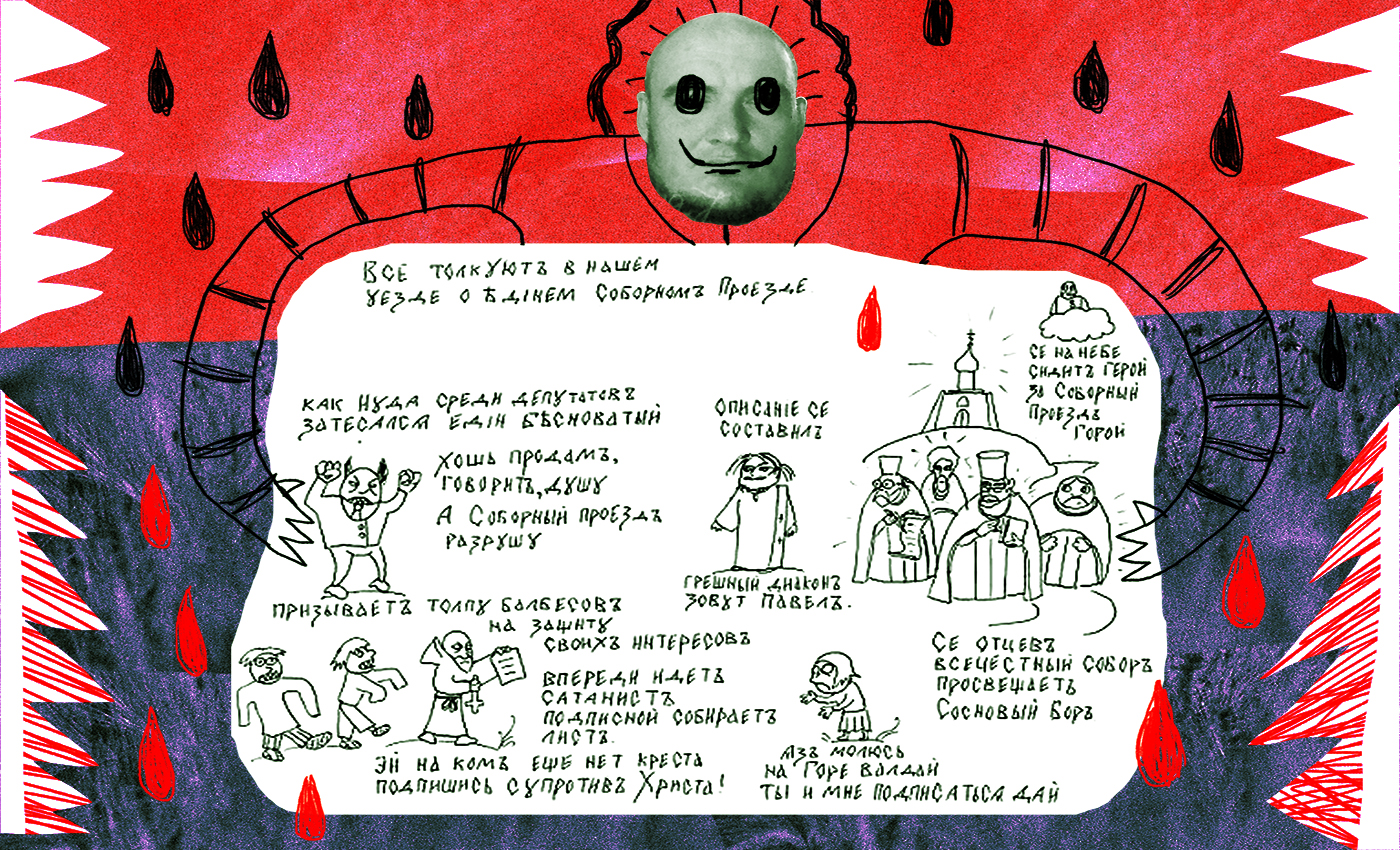 Все толкуютъ в нашем
уезде о ѣдiнем Соборномъ Проезде
как Иуда среди депутатовъ
затесался едiн бѣсноватый
Хошь продамъ,
говоритъ, душу
А Соборный проездъ
разрушу
Описанiе се
составилъ
се на небе
сидитъ герой
за Соборный
Проездъ
горой
призываетъ толпу балбесовъ
на защиту
своихъ интересовъ
грешный диаконъ
зовут Павелъ.
впереди идетъ
сатанистъ
подписной собираетъ
листъ.
Се отцевъ
всечестный соборъ
просвещаетъ
Сосновый Боръ
Эй на комъ еще нет креста
подпишись супротивъ Христа!
Язъ молюсь
на горе валдай
ты и мне подписаться дай